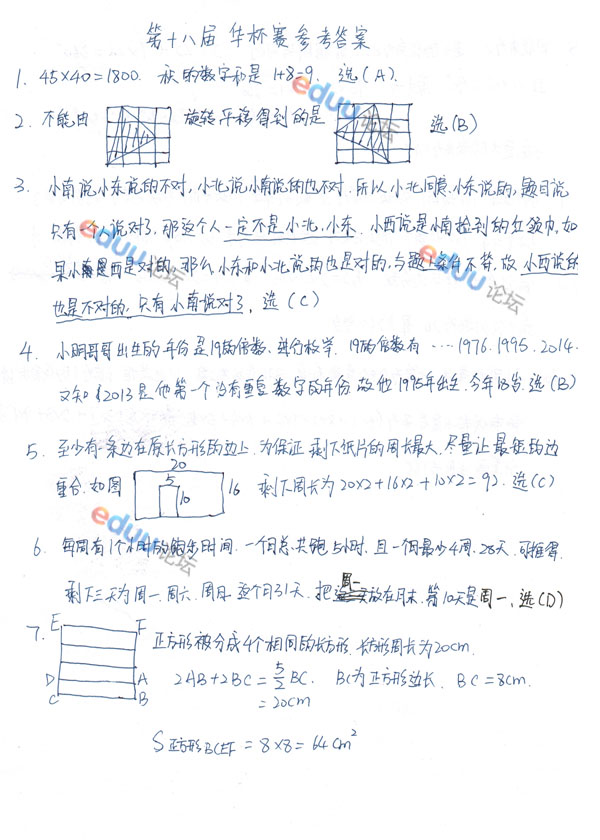 第十八届华杯赛参考答案
1. 45×40=1800. 积的数字和是 1+8=9. 选(A).
2. 不能由 旋转平移得到的是 选(B)
3. 小南说小东说的不对,小北说小南说的也不对.所以小北同意小东说的,题目说
只有一个人说对了,那这个人一定不是小北,小东.小西说是小南捡到的红领巾,如
果小西是对的,那么,小东和小北说的也是对的,与题目条件不符,故小西说的
也是不对的,只有小南说对了,选(C)
4. 小明哥哥出生的年份是19的倍数,进行枚举.19的倍数有…1976.1995.2014.
又知2013是他第一个没有重复数字的年份.故他1995年出生.今年18岁.选(B)
5. 至少有一条边在原长方形的边上.为保证剩下纸片的周长最大,尽量让最短的边
20
重合.如图 5 10 16 剩下周长为20×2+16×2+10×2=92.选(C)
6. 每周有1个小时的跑步时间.一个月总共跑5小时,且一个月最少4周,28天.可推得
剩下三天为周一.周六.周日.这个月31天.把周一放在月末,第10天是周一,选(D)
7. E F 正方形被分成4个相同的长方形.长方形周长为20cm.
D A 2AB+2BC=5/2 BC. BC为正方形边长. BC=8cm.
C B =20cm
S正方形BCEF=8×8=64cm²
eduu论坛
eduu论坛
eduu论坛
eduu论坛